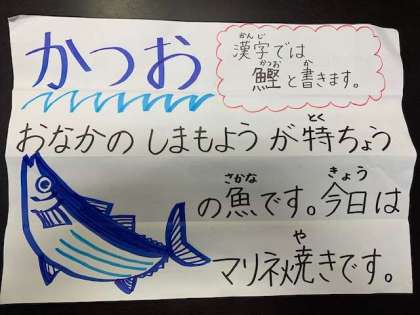 かつお
漢字では
鰹と書きます。
おなかのしまもようが特ちょう
の魚です。今日は
マリネ焼きです。